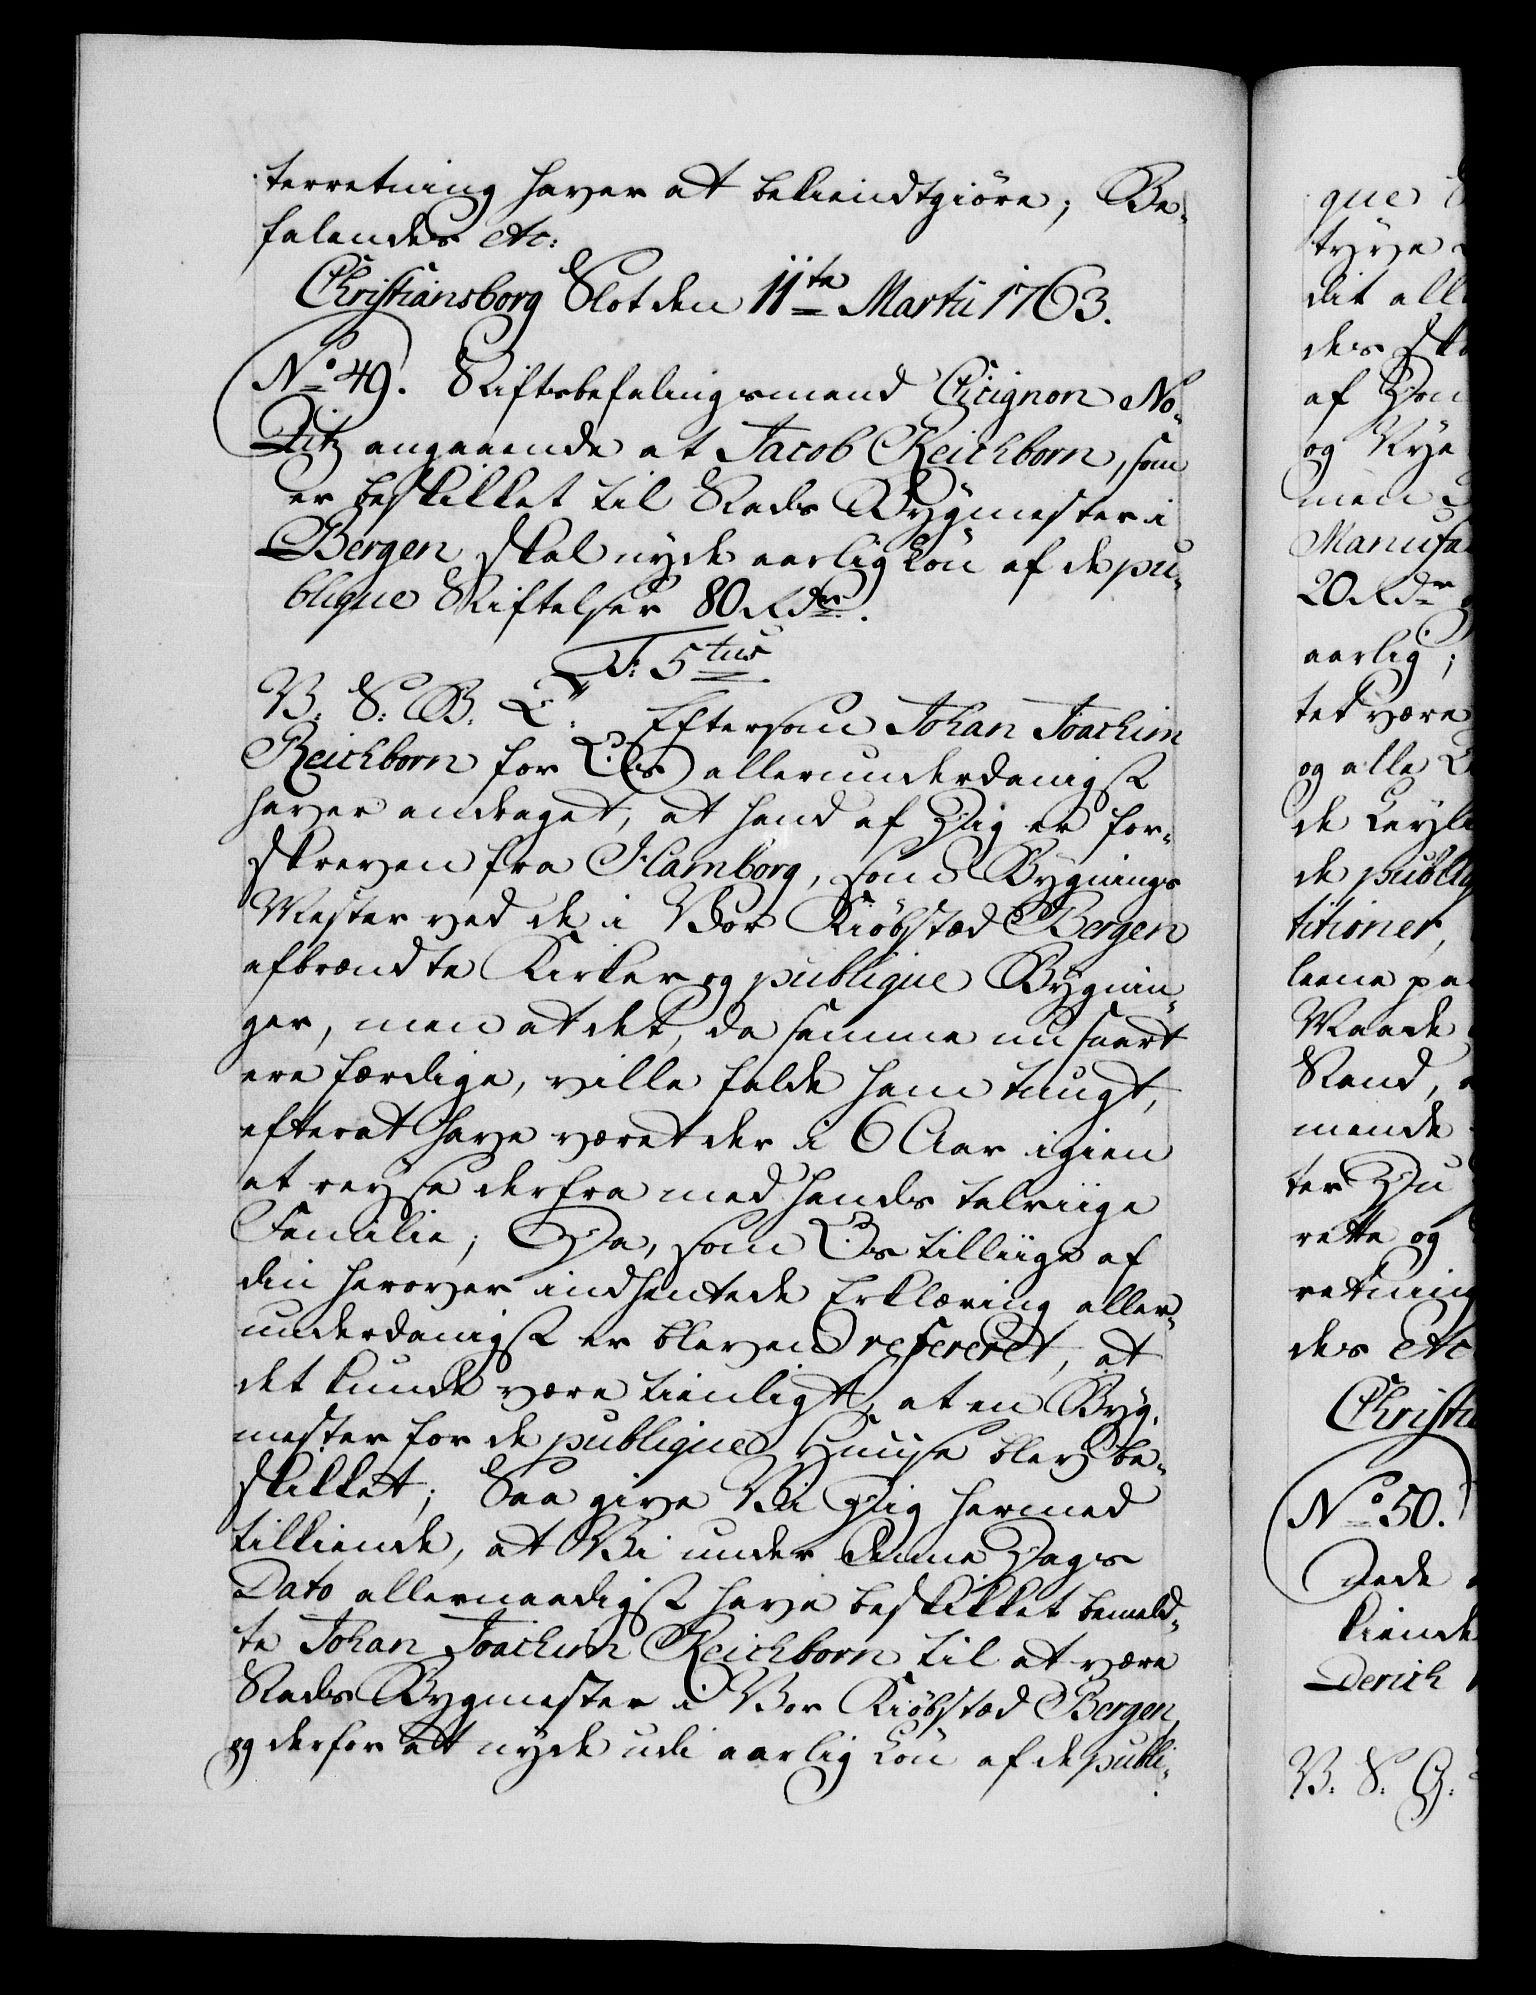 terretning haver at bekiendtgiöre; Be-
falendes etc:
Christiansborg Slot den 11te Martii 1763.
No 49. Stiftsbefalingsmand Cicignon No-
titz angaaende at Jacob Reichborn, som
er beskikket til Stads Bÿgmester i
Bergen skal nyde aarlig Lön af de pu-
blique Stiftelser 80 Rdr.
F: 5tus
V. S. B. T. Eftersom Johan Joachim
Reichborn for Os allerunderdanigst
haver andraget, at hand af Dig er for-
skreven fra Hamborg, som Bygnings
Mester ved de i Vor Kiöbstæd Bergen
afbrændte Kirker og publique Bygnin-
ger, men at det, da samme nu snart
ere færdige, ville falde ham tungt,
efterat have været der i 6 Aar igien
at reyse derfra med hands talriige
Familie; Da, som Os tilliige af
din herover indhentede Erklæring aller-
underdanigst er bleven refereret, at
det kunde være tienligt, at en Byg-
mester for de publique Huuse blev be-
skikket; Saa give Vi Dig hermed
tilkiende, at Vi under denne Dags
Dato allernaadigst have beskikket bemeld-
te Johan Joachim Reichborn til at være
Stads Bygmester i Vor Kiöbstæd Bergen,
og derfor at nyde udi aarlig Lön af de publi-
que
tyve
dit all
des
af
og Nye
men
Manufa
20 Rdr
aarlig;
tet være
og alle
de
de publiq
titioner,
leene pa
Maade
Stand,
mende
ter Du
rette og
retning
des etc
Christi
No 50.
kiende
Derich
V. S. G.